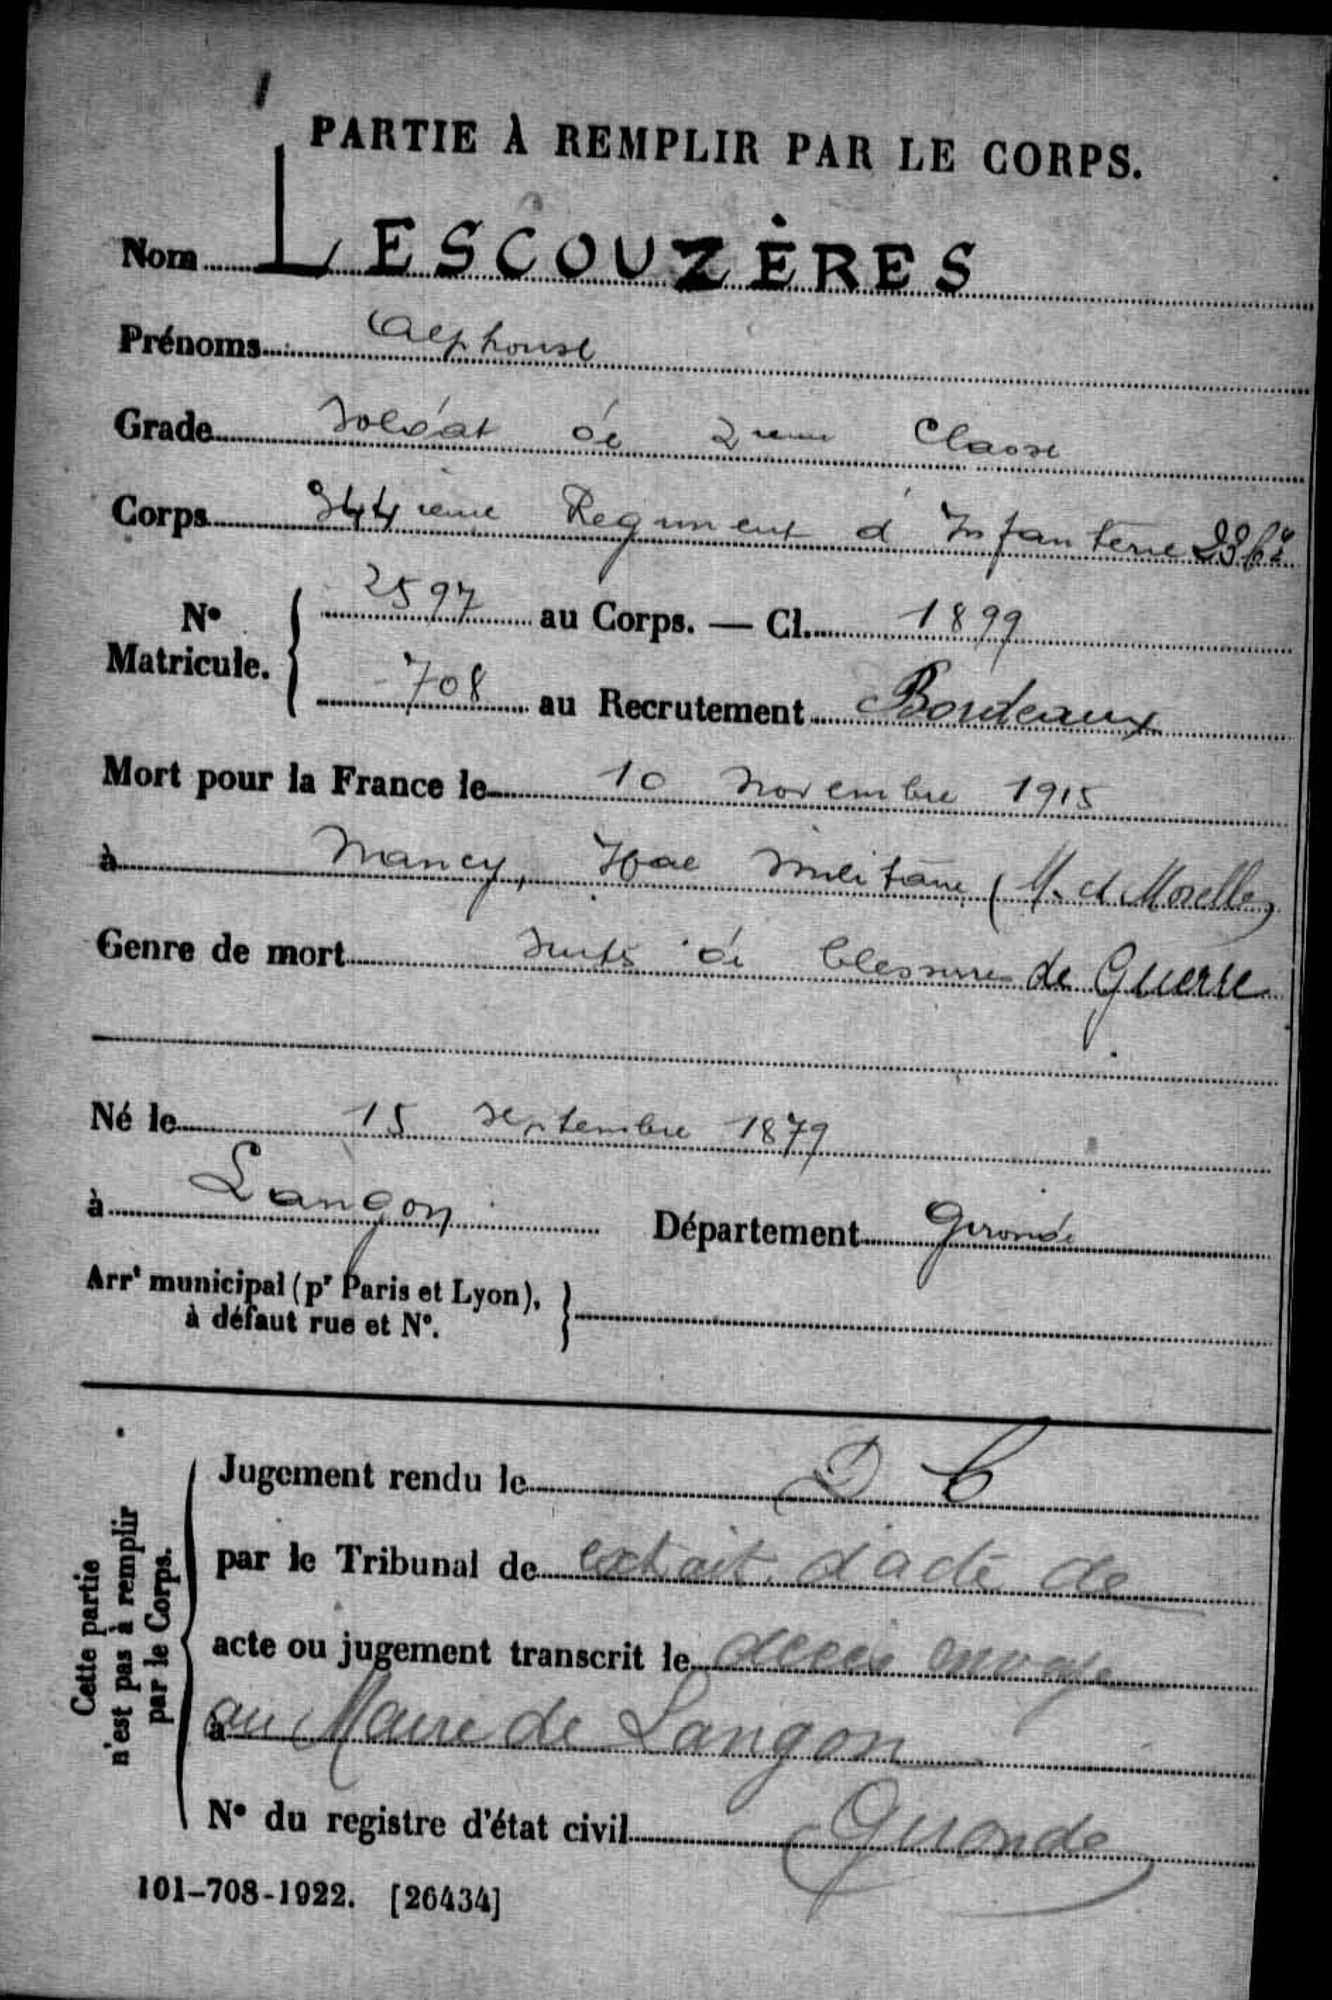 PARTIE À REMPLIR PAR LE CORPS.
Nom LESCOUZÈRES
Prénoms Alphonse
Grade Soldat de 2ieme Classe
Corps 344ieme Regiment d'Infanterie
N° Matricule. 2597 au Corps. — Cl. 1899
708 au Recrutement Bordeaux
Mort pour la France le 10 Novembre 1915
à Nancy, militaire (M. et Moselle)
Genre de mort Suites de blessures de Guerre
Né le 15 Septembre 1879
à Langon Département Gironde
Arrt municipal (pr Paris et Lyon),
à défaut rue et N°.
Cette partie
n'est pas à remplir
par le Corps.
Jugement rendu le D C
par le Tribunal de extrait d'acte de
acte ou jugement transcrit le décès envoyé
à au Maire de Langon
N° du registre d'état civil Gironde
101-708-1922. [26434]